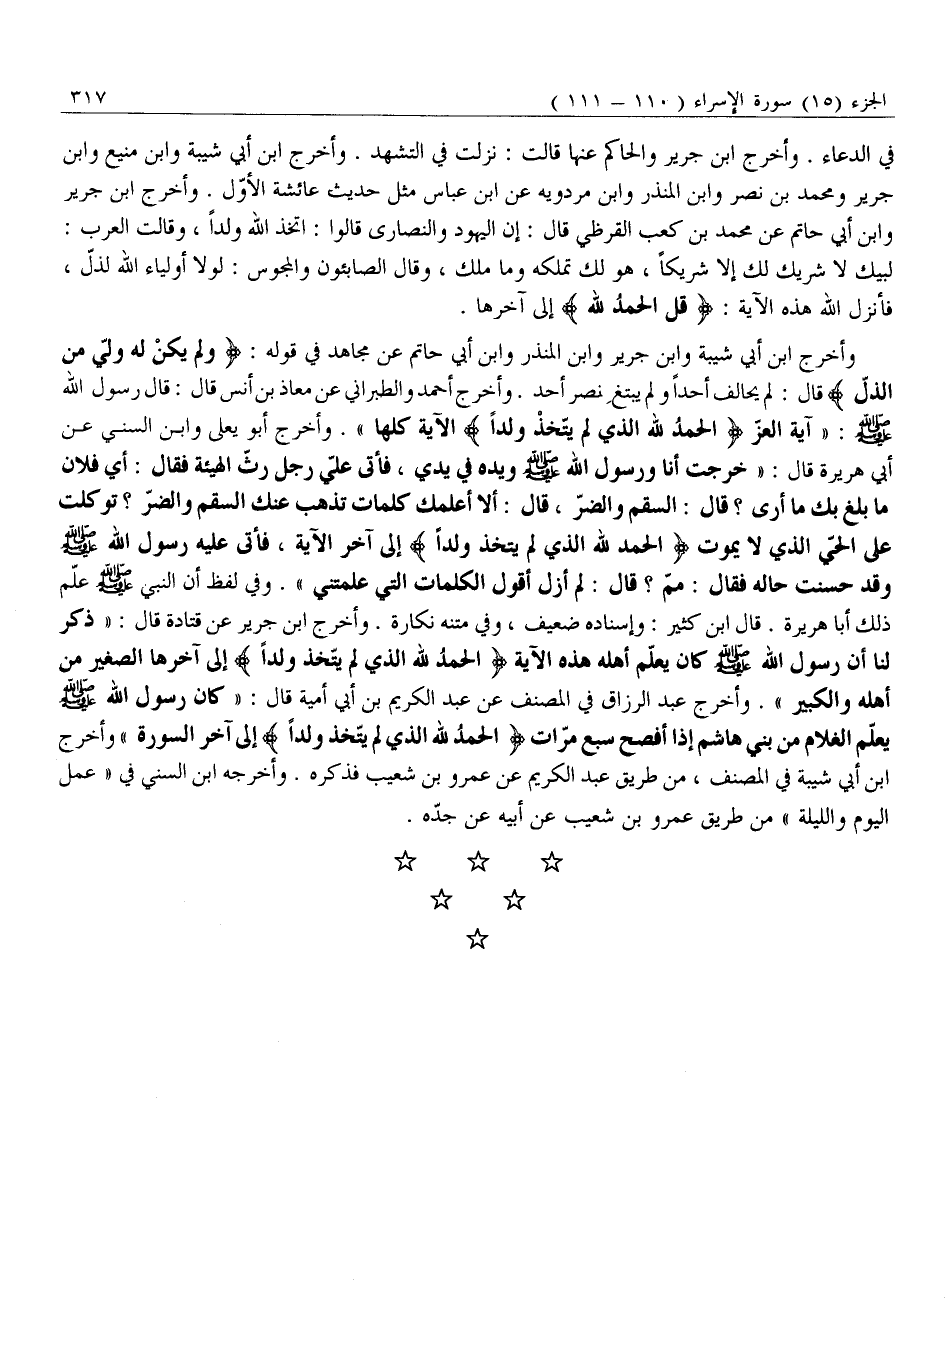 الجزء (١٥) سورة الإسراء ( ١١٠ – ١١١ ) ٣١٧
في الدعاء . وأخرج ابن جرير والحاكم عنها قالت : نزلت في التشهد . وأخرج ابن أبي شيبة وابن منيع وابن
جرير ومحمد بن نصر وابن المنذر وابن مردويه عن ابن عباس مثل حديث عائشة الأوّل . وأخرج ابن جرير
وابن أبي حاتم عن محمد بن كعب القرظي قال : إن اليهود والنصارى قالوا : اتخذ الله ولداً ، وقالت العرب :
لبيك لا شريك لك إلا شريكاً ، هو لك تملكه وما ملك ، وقال الصابئون والمجوس : لولا أولياء الله لذلّ ،
فأنزل الله هذه الآية : ﴿ قل الحمدُ لله ﴾ إلى آخرها .
وأخرج ابن أبي شيبة وابن جرير وابن المنذر وابن أبي حاتم عن مجاهد في قوله : ﴿ ولم يكنْ له وليّ من
الذلّ ﴾ قال : لم يحالف أحداً ولم يبتغِ نصر أحد . وأخرج أحمد والطبراني عن معاذ بن أنس قال : قال رسول الله
ﷺ : « آية العزّ ﴿ الحمدُ لله الذي لم يتّخذْ ولداً ﴾ الآية كلها » . وأخرج أبو يعلى وابن السني عن
أبي هريرة قال : « خرجت أنا ورسول الله ﷺ ويده في يدي ، فأتى عليّ رجل رثّ الهيئة فقال : أي فلان
ما بلغ بك ما أرى ؟ قال : السقم والضرّ ، قال : ألا أعلمك كلمات تذهب عنك السقم والضرّ ؟ توكلت
على الحيّ الذي لا يموت ﴿ الحمد لله الذي لم يتخذ ولداً ﴾ إلى آخر الآية ، فأتى عليه رسول الله ﷺ
وقد حسنت حاله فقال : ممّ ؟ قال : لم أزل أقول الكلمات التي علمتني » . وفي لفظ أن النبي ﷺ علّم
ذلك أبا هريرة . قال ابن كثير : وإسناده ضعيف ، وفي متنه نكارة . وأخرج ابن جرير عن قتادة قال : « ذكر
لنا أن رسول الله ﷺ كان يعلّم أهله هذه الآية ﴿ الحمدُ لله الذي لم يتّخذ ولداً ﴾ إلى آخرها الصغير من
أهله والكبير » . وأخرج عبد الرزاق في المصنف عن عبد الكريم بن أبي أمية قال : « كان رسول الله ﷺ
يعلّم الغلام من بني هاشم إذا أفصح سبع مرّات ﴿ الحمدُ لله الذي لم يتّخذ ولداً ﴾ إلى آخر السورة » وأخرج
ابن أبي شيبة في المصنف ، من طريق عبد الكريم عن عمرو بن شعيب فذكره . وأخرجه ابن السني في « عمل
اليوم والليلة » من طريق عمرو بن شعيب عن أبيه عن جدّه .